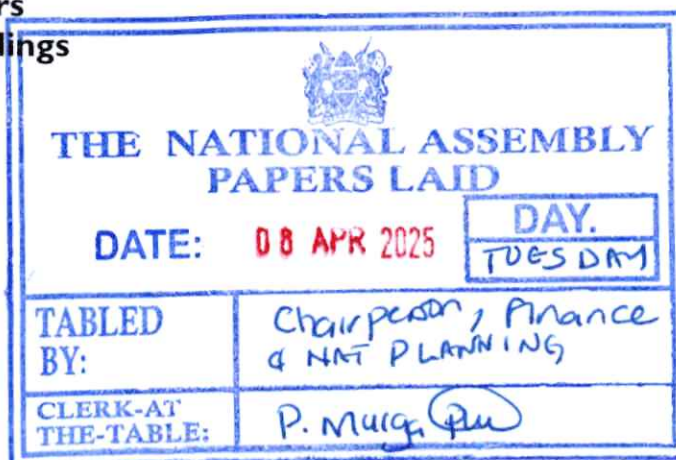 rs
lings
THE NATIONAL ASSEMBLY
PAPERS LAID
DATE: 08 APR 2025
DAY.
TUESDAY
TABLED BY:
Chairperson, Finance
& NAT PLANNING
CLERK-AT
THE-TABLE:
P.